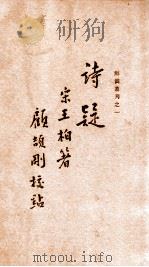 辨偽叢刊之一
詩疑
宋王柏著
顧頡剛校點
www.pdfbook.cn